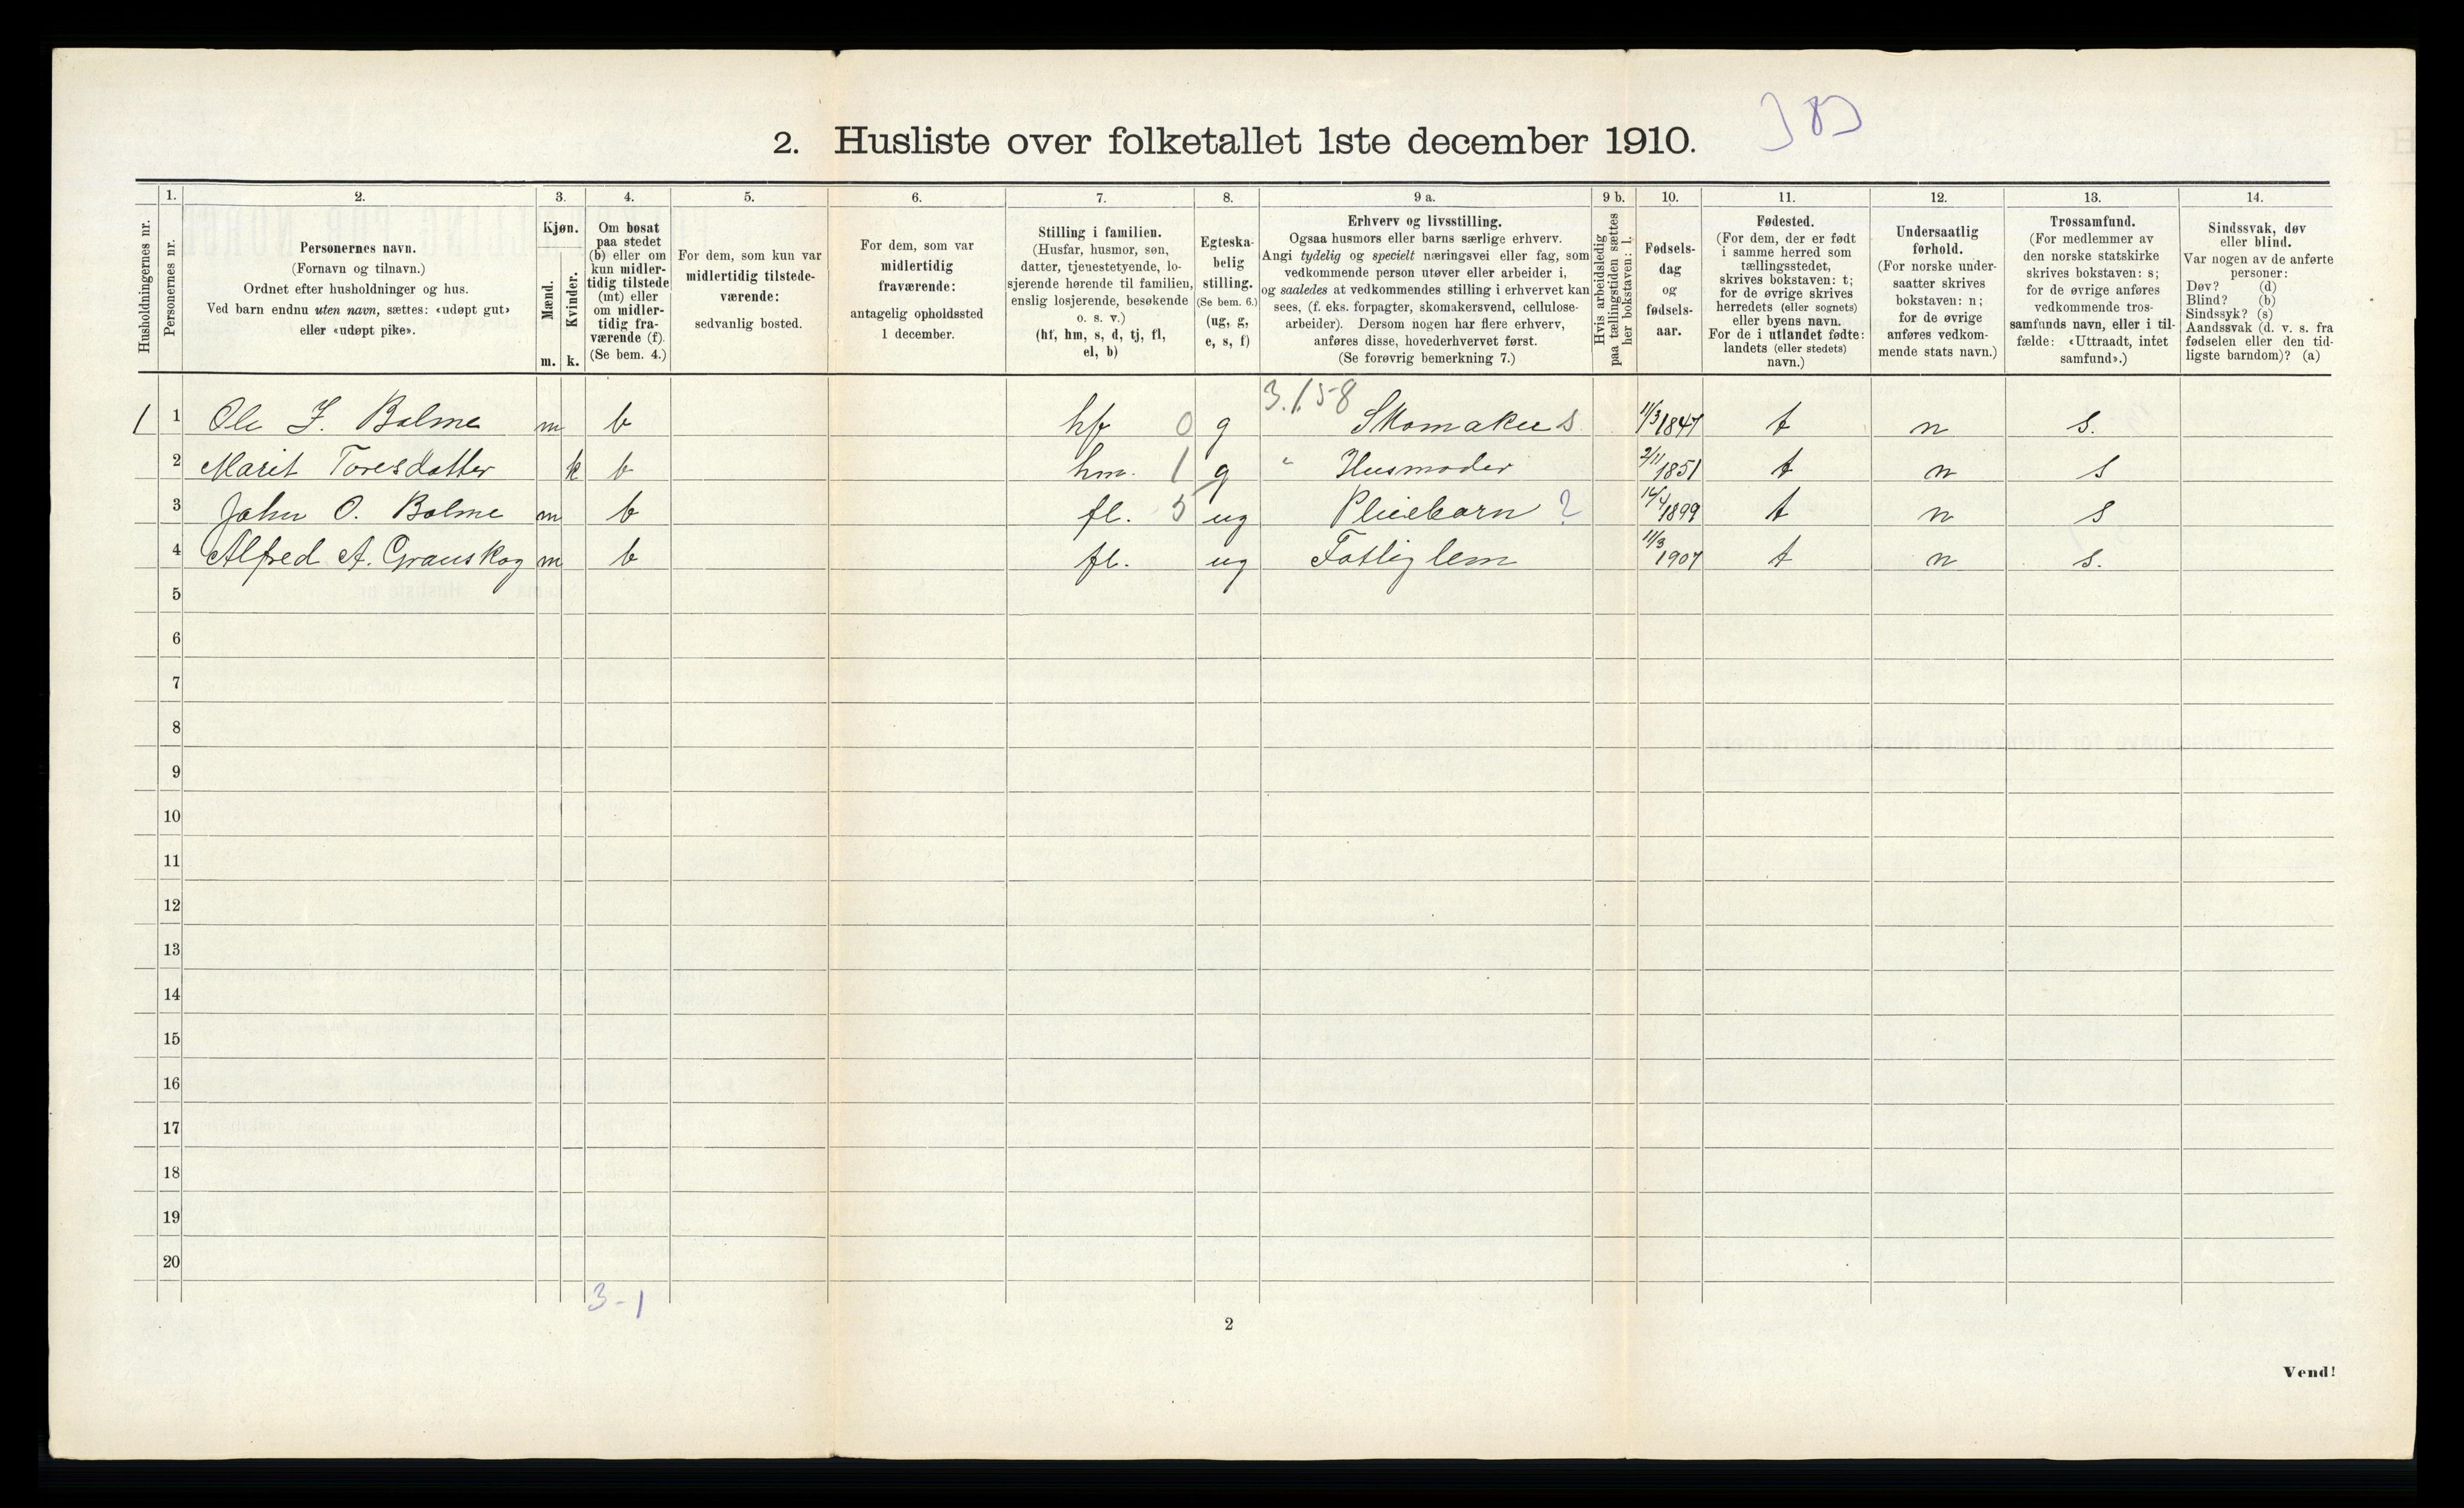 2. Husliste over folketallet 1ste december 1910.
Husholdningernes nr.
1.
Personernes nr.
2.
Personernes navn.
(Fornavn og tilnavn.)
Ordnet efter husholdninger og hus.
Ved barn endnu uten navn, sættes: «udøpt gut»
eller «udøpt pike».
3.
Kjøn.
Mænd.
Kvinder.
m. k.
4.
Om bosat
paa stedet
(b) eller om
kun midler-
tidig tilstede
(mt) eller
om midler-
tidig fra-
værende (f).
(Se bem. 4.)
5.
For dem, som kun var
midlertidig tilstede-
værende:
sedvanlig bosted.
6.
For dem, som var
midlertidig
fraværende:
antagelig opholdssted
1 december.
7.
Stilling i familien.
(Husfar, husmor, søn,
datter, tjenestetyende, lo-
sjerende hørende til familien,
enslig losjerende, besøkende
o. s. v.)
(hf, hm, s, d, tj, fl,
el, b)
8.
Egteska-
belig
stilling.
(Se bem. 6.)
(ug, g,
e, s, f)
9 a.
Erhverv og livsstilling.
Ogsaa husmors eller barns særlige erhverv.
Angi tydelig og specielt næringsvei eller fag, som
vedkommende person utøver eller arbeider i,
og saaledes at vedkommendes stilling i erhvervet kan
sees, (f. eks. forpagter, skomakersvend, cellulose-
arbeider). Dersom nogen har flere erhverv,
anføres disse, hovederhvervet først.
(Se forøvrig bemerkning 7.)
9 b.
Hvis arbeidsledig
paa tællingstiden sættes
her bokstaven: l.
10.
Fødsels-
dag
og
fødsels-
aar.
11.
Fødested.
(For dem, der er født
i samme herred som
tællingsstedet,
skrives bokstaven: t;
for de øvrige skrives
herredets (eller sognets)
eller byens navn.
For de i utlandet fødte:
landets (eller stedets)
navn.)
12.
Undersaatlig
forhold.
(For norske under-
saatter skrives
bokstaven: n;
for de øvrige
anføres vedkom-
mende stats navn.)
13.
Trossamfund.
(For medlemmer av
den norske statskirke
skrives bokstaven: s;
for de øvrige anføres
vedkommende tros-
samfunds navn, eller i til-
fælde: «Uttraadt, intet
samfund».)
14.
Sindssvak, døv
eller blind.
Var nogen av de anførte
personer:
Døv? (d)
Blind? (b)
Sindssyk? (s)
Aandssvak (d. v. s. fra
fødselen eller den tid-
ligste barndom)? (a)
3.1.5-8
1 1 Ole J. Bolme m b hf 0 g Skomaker s 11/3 1847 t n s.
2 Marit Toresdatter k b hm. 1 g " Husmoder 2/11 1851 t n s
3 John O. Bolme m b fl. 5 ug Pleiebarn ? 14/4 1899 t n s
4 Alfred A. Granskog m b fl. ug Fatiglem 11/3 1907 t n s.
5
6
7
8
9
10
11
12
13
14
15
16
17
18
19
20
3-1
2
Vend!